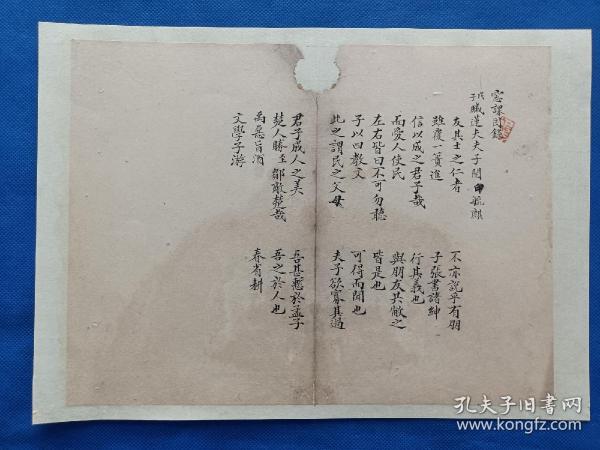 窓課即鑑
弍
職蓮夫夫子聞毓麒
友其士之仁者
雖覆一簣進
信以成之君子哉
而愛人使民
左右皆曰不可勿聽
子以四教文
此之謂民之父母
君子成人之美
楚人勝至鄒敵楚哉
禹惡旨酒
文學子游
不亦說乎有朋
子張書諸紳
行其義也
與朋友共敝之
皆是也
可得而聞也
夫子欲寡其過
吾甚慙於孟子
吾之於人也
春省耕
孔夫子旧书网
www.kongfz.com